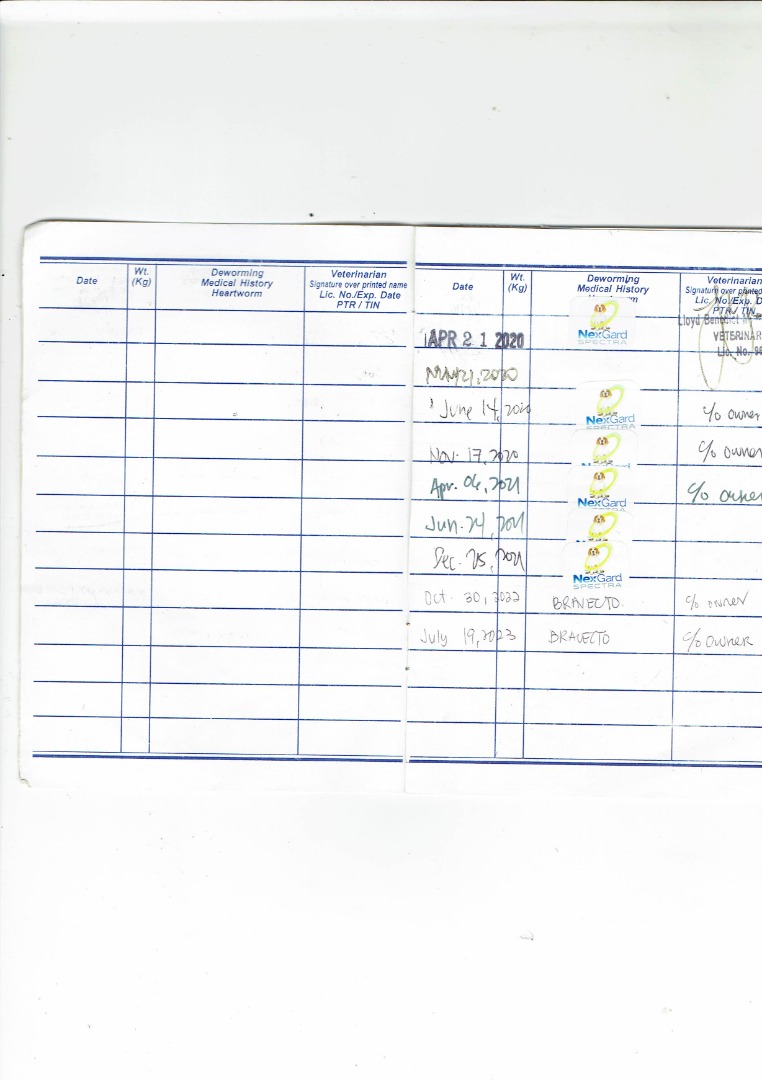 Date
Wt.
(Kg)
Deworming
Medical History
Heartworm
Veterinarian
Signature over printed name
Lic. No./Exp. Date
PTR / TIN
Date
Wt.
(Kg)
Deworming
Medical History
Veterinarian
Signature over printed
Lic. No./Exp. D
PTR / TIN
APR 21 2020
NexGard
SPECTRA
Lloyd Benedict
VETERINAR
Lic. No.
May 21, 2020
June 14, 2020
NexGard
SPECTRA
c/o owner
Nov. 17, 2020
c/o owner
Apr. 06, 2021
NexGard
c/o owner
Jun. 24, 2021
Dec. 25, 2021
NexGard
SPECTRA
Oct. 30, 2022 BRAVECTO. c/o owner
July 19, 2023 BRAVECTO c/o owner